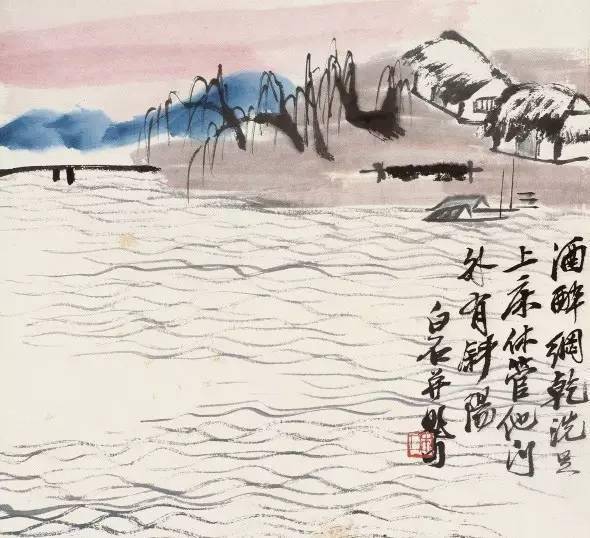 酒醉網乾洗足
上床休管他門
外有斜陽
白石并題